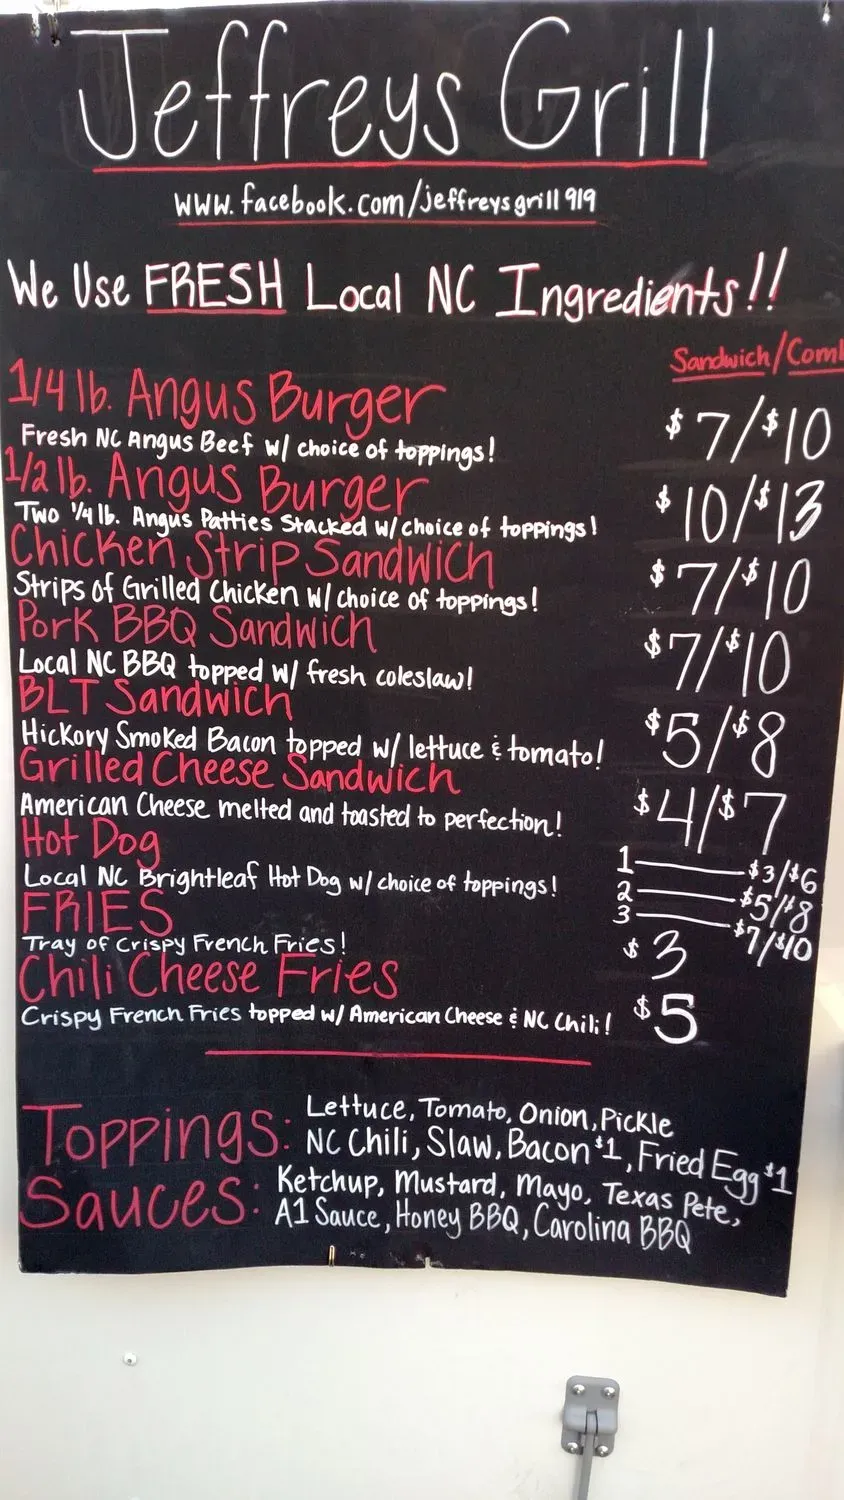 Jeffreys Grill
www.facebook.com/jeffreysgrill919
We Use FRESH Local NC Ingredients!!
Sandwich/Com
1/4 lb. Angus Burger $7/$10
Fresh NC Angus Beef w/ choice of toppings!
1/2 lb. Angus Burger $10/$13
Two 1/4 lb. Angus Patties Stacked w/ choice of toppings!
Chicken Strip Sandwich $7/$10
Strips of Grilled Chicken w/ choice of toppings!
Pork BBQ Sandwich $7/$10
Local NC BBQ topped w/ fresh coleslaw!
BLT Sandwich $5/$8
Hickory Smoked Bacon topped w/ lettuce & tomato!
Grilled Cheese Sandwich $4/$7
American Cheese melted and toasted to perfection!
Hot Dog 1 $3/$6
Local NC Brightleaf Hot Dog w/ choice of toppings! 2 $5/$8
3 $7/$10
FRIES $3
Tray of Crispy French Fries!
Chili Cheese Fries $5
Crispy French Fries topped w/ American Cheese & NC Chili!
Toppings: Lettuce, Tomato, Onion, Pickle
NC Chili, Slaw, Bacon $1, Fried Egg $1
Sauces: Ketchup, Mustard, Mayo, Texas Pete,
A1 Sauce, Honey BBQ, Carolina BBQ